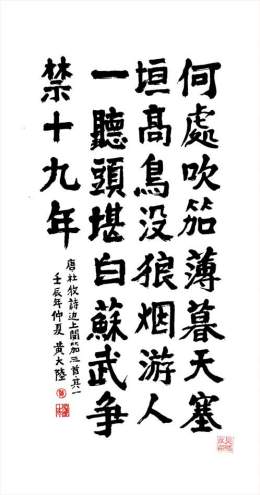 何處吹笳薄暮天塞
垣高鳥没狼烟游人
一聽頭堪白蘇武争
禁十九年
唐杜牧詩边上聞笳三首·其一
壬辰年仲夏黄大陆